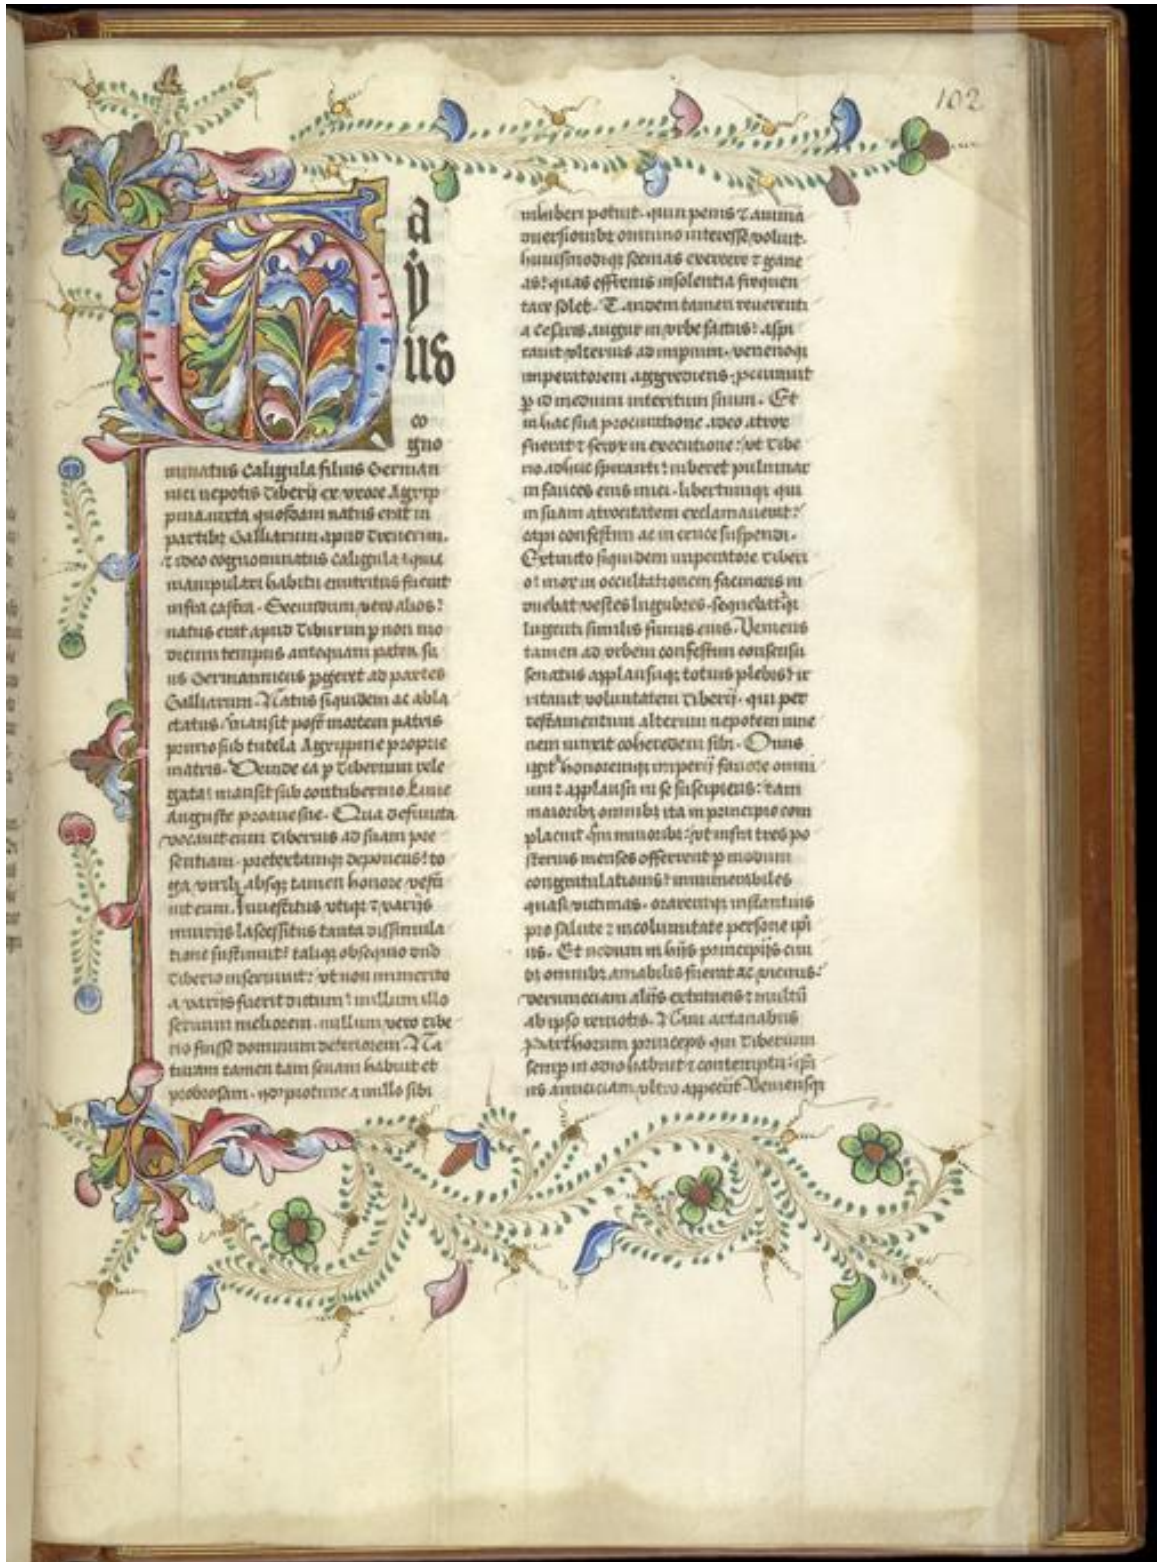 102
a
y
us
co
gno
minatus Caligula filius German
nici nepotis Tiberij ex uxore Agrip
pina iuxta quosdam natus erat in
partibꝫ Galliarum apud Treverim.
⁊ ideo cognominatus Caligula quia
manipulari habitu enutritus fuerat
infra castra. Secundum vero alios:
natus erat apud Tiburim ꝑ non mo
dicum tempus antequam pater su
us Germanicus ꝑgeret ad partes
Galliarum. Natus siquidem ac abla
ctatus mansit post mortem patris
primo sub tutela Agrippine proprie
matris. Deinde ea ꝑ Tiberium rele
gata: mansit sub contubernio Livie
Auguste proavie sue. Qua defuncta
vocavit eum Tiberius ad suam pre
sentiam. pretextamqꝫ deponens: to
ga virili absqꝫ tamen honore vesti
uit eum. Investitus utiqꝫ ⁊ varijs
iniuriis lacessitus tanta dissimula
tione sustinuit: taliqꝫ obsequio dnō
Tiberio inseruiuit: ut non immerito
a varijs fuerit dictum: nullum illo
seruum meliorem. nullum vero Tibe
rio fuisse dominum deteriorem. Na
turam tamen tam sevam habuit et
probrosam. a nullo sibi
inhiberi potuit. quin penis ⁊ animad
uersionibꝫ omnino interesse voluit.
huiusmodiqꝫ scenas exercere ⁊ gane
as: quas effrenis insolentia frequen
tare solet. Tandem tamen reverenti
a Cesaris augur in urbe factus: aspi
ravit ulterius ad imperium. venenoqꝫ
imperatorem aggrediens.
ꝑ id medium interitum suum. Et
in hac sua procuratione adeo atrox
fuerat ⁊ ferox in executione: ut Tibe
rio adhuc spiranti: iuberet pulvinar
in fauces eius inici. libertumqꝫ qui
in suam atrocitatem exclamaverit:
capi confestim ac in cruce suspendi.
Extincto siquidem imperatore Tiberi
o: mox in occultationem facinoris in
duebat vestes lugubres. sequebatqꝫ
lugenti similis funus eius. Veniens
tamen ad urbem confestim consensu
senatus applausuqꝫ totius plebis: ir
ritavit voluntatem Tiberij. qui per
testamentum alterum nepotem iuve
nem iunxit coheredem sibi. Onus
igitᵘ honoremqꝫ imperij favore omni
um ⁊ applausu in se suscipiens: tam
maioribꝫ omnibꝫ ita in principio com
placuit qm̄ minoribꝫ: ut infra tres po
sterius menses offerrent ꝑ modum
congratulationis: innumerabiles
quasi victimas. orarentqꝫ instantius
pro salute ⁊ incolumitate persone ipsi
us. Et nedum in hijs principijs civi
bꝫ omnibꝫ amabilis fuerat ac
verum eciam alijs extraneis ⁊ multū
ab ipso remotis. Nam Artanabus
Parthorum princeps qui Tiberium
semꝑ in odio habuit ⁊ contemptu: ipsi
us amiciciam ultro appeciit. Veniensqꝫ